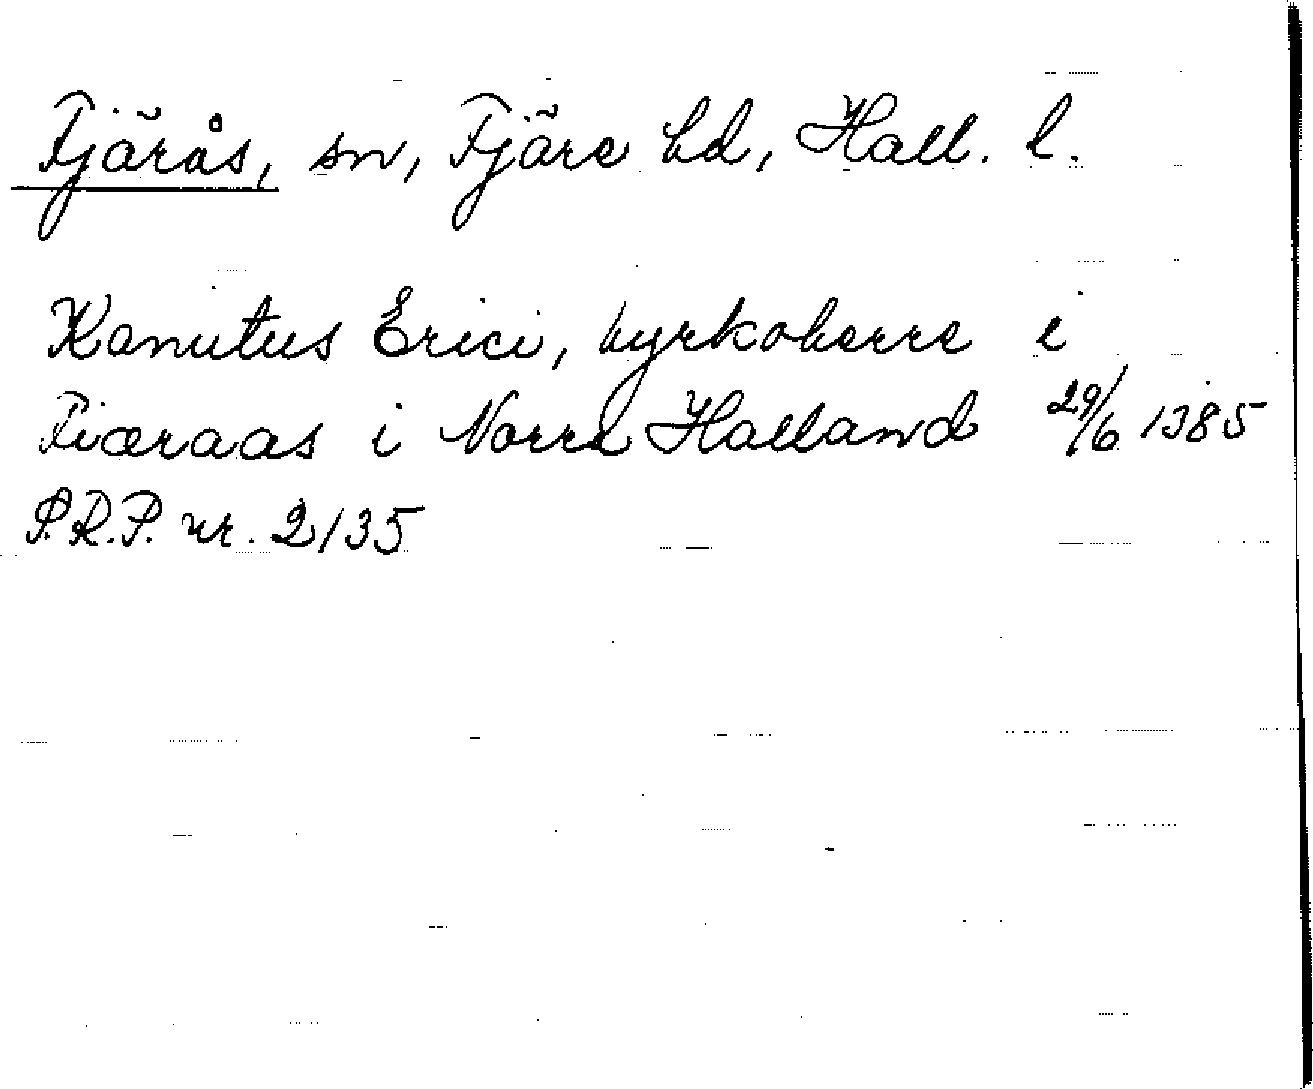 Fjärås, sn, Fjäre hd, Hall. l.
Kanutus Erici, kyrkoherre i
Fiæraas i Norra Halland 29/6 1385
S.R.P. nr. 2135